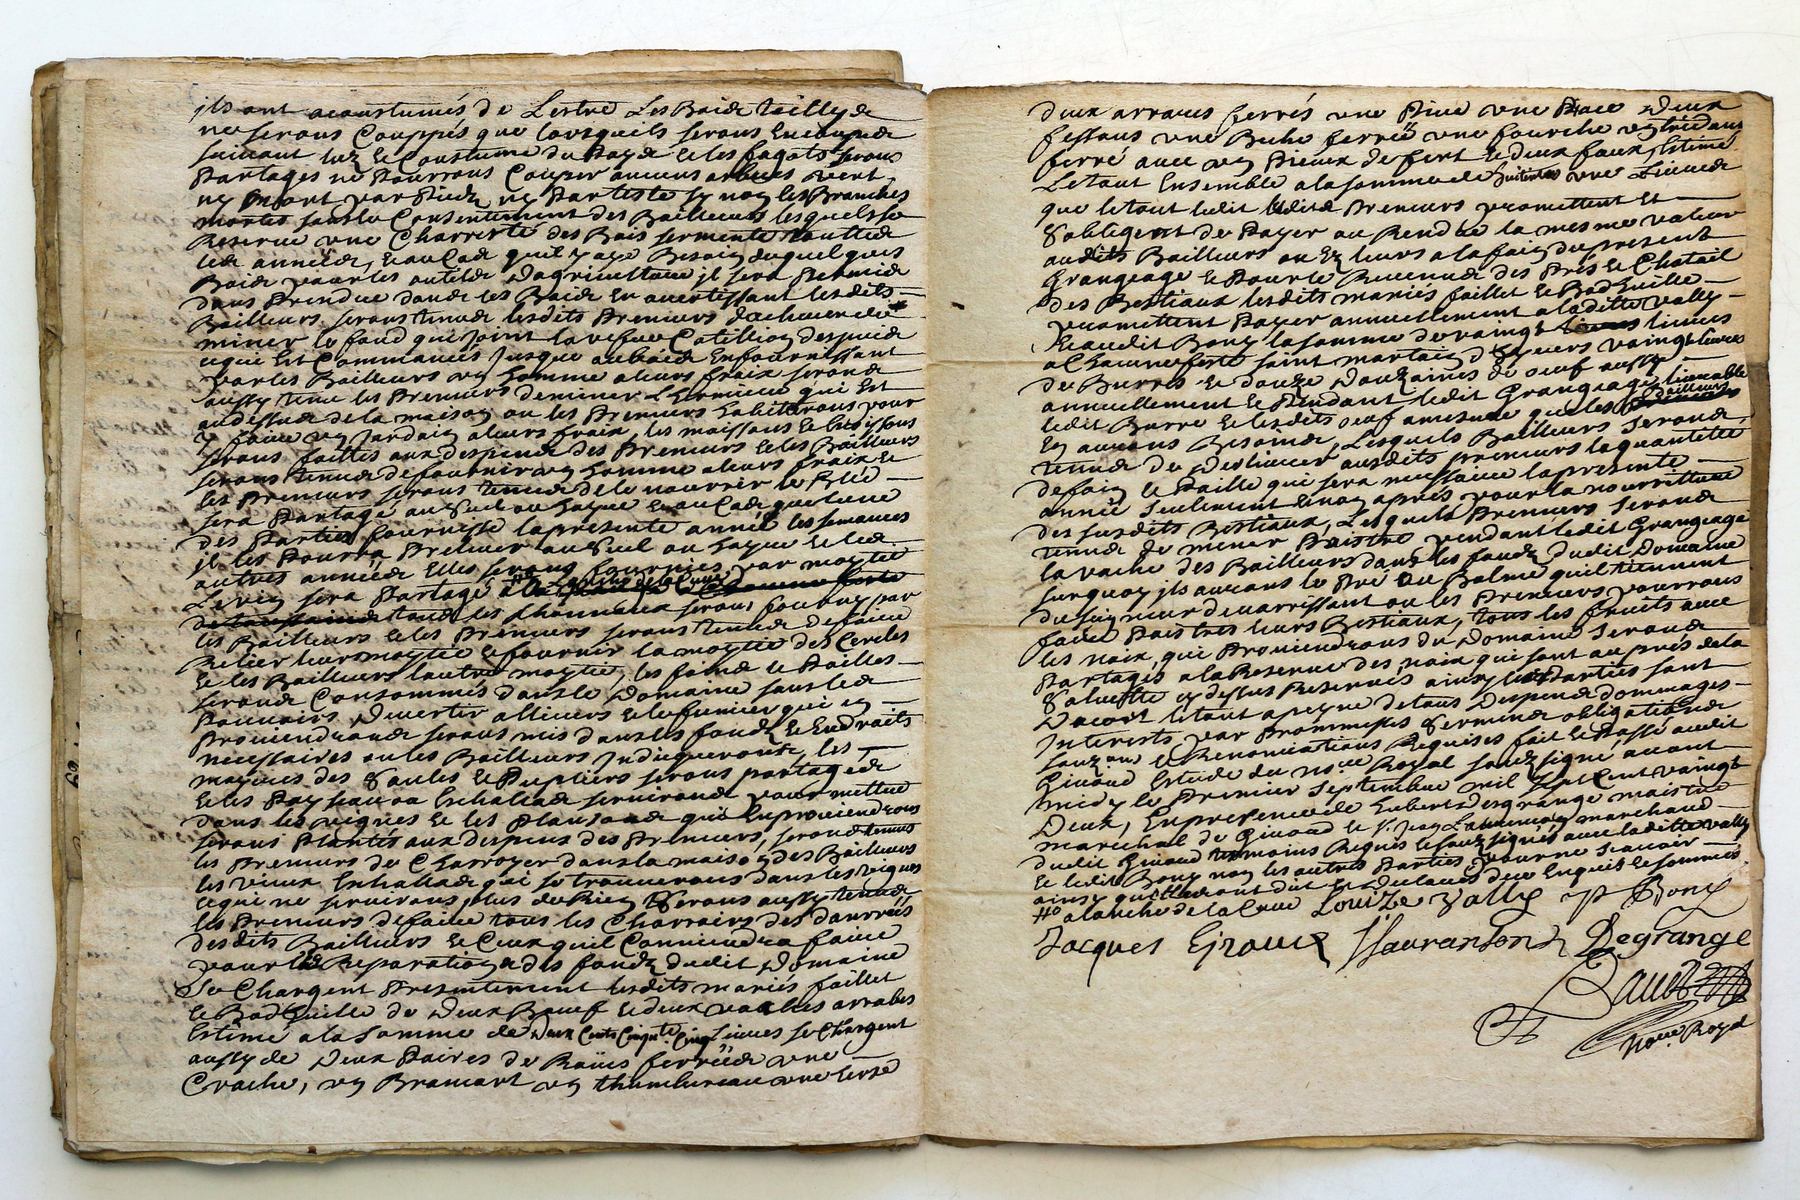 ils ont acoustumés de Lestre Les Boids taillyds
ne serons Couppés que lorsquels serons
suivant luz Le Coustume du Payd Et les fagots serons
Partages ne Pourrons Couper aucuns arbres vert
ny mort par Pied ny Par teste sy non les Branches
mortes sans le Consentement des Bailleurs lesquels se
Reserve une Charretté des Bois serments
les année, Et au Cas quil y aye Besoin de quelques
Boids pour les outilds Dagriculture il sera Permis
dans Prendre dands les Boids En avertissant lesdits
Bailleurs serons tenuds lesdits Preneurs dachever de
miner le fond qui joint la vefve Catillion despuis
ce qui Est Commancés jusque au boids En fournissant
par les Bailleurs un homme a leurs fraix serons
aussy tenu les Preneurs de miner L'hermieux qui Est
au dessus de la maison ou les Preneurs habiterons pour
y faire un jardain a leurs fraix, les moissons Et
serons faittes aux despends des Preneurs Et les Bailleurs
serons tenuds de fournir un homme a leurs fraix Et
les Preneurs serons tenuds de le nourrir le Blé
sera Partagé au Et au Cas que lune
des Parties fournisse la presente année les semances
il les Pourra Prelever au ou Et les
autres annéeds Elles serons fournies par moytié
Le vin sera Partagé a Lanche de la Cuve
tous les thonneaux serons fournys par
les Bailleurs Et les Preneurs serons tenuds de faire
Relier leur moytié Et fournir la moytié des Cercles
Et les Bailleurs lautre moytié, les foinds Et Pailles
seronds Consommés dans le Domaine sans les
Pouvoirs Divertir allieurs Et le fumier qui en
Proviendronds serons mis dans les fondz Et Endroits
necessaires ou les Bailleurs Indiqueronts, les
des Saules Et Peupliers serons partagéds
Et les Paysseau ou Echalads servironds pour mettre
dans les vignes Et les plansonds qui En proviendrons
serons Plantés aux despens des Preneurs, seronds tenus
les Preneurs de Charroyer dans la maison des Bailleurs
les vieux Echalads qui se trouverons dans les vignes
ce qui ne servirons plus de Rien Serons aussy tenuds
les Preneurs de faire tous les Charrois des danrrées
desdits Bailleurs Et Ceux quil Conviendra faire
pour les Reparations des fondz dudit Domaine
Se Chargent Presentement lesdits mariés faillet
Et Badguille de Deux Boeuf Et deux vaches arrables
Estimé a la somme de Deux Cents Cinqte Cinq Livres se Chargent
aussy de Deux Paires de Roües ferréeds une
Crache, un Brancart un thumbereau une herse
deux arraus ferrés une Pieu une Deux
fessous une Beche ferrée une fourche un
ferré avec un Pieux de fert Et deux faux, Estimé
Le tout Ensemble a la somme de huitente une Livres
que le tout lesdits Preneurs promettent Et
S'obligent de Payer ou Rendre la mesme valeur
audits Bailleurs ou Ez leurs a la fain du present
Grangeage Et Pour le Revenuds des Prés Et Chatail
des Bestiaux lesdits mariés faillet Et Badguille
promettent Payer annuellement a laditte vally
Et audit Bony la somme de vaingt livres
a Chacune feste saint martain d'hyvers vaingt livres
de Burre Et douze Douzaines de oeuf aussy
annuellement Et Pendant ledit Grangeage, livrable
ledit Burre Et lesdits oeuf amesure que les Bailleurs
En aurons Besoinds, Lesquels Bailleurs Seronds
tenuds de Deslivrer ausdits preneurs la quantitté
de foin Et Paille qui sera nessaire la presente
année seulement Et non aprés pour la nourritture
des susdits Bestiaux, Lesquels Preneurs Seronds
tenuds de mener Paistre pendant ledit Grangeage
la vache des Bailleurs dans les fondz dudit Domaine
surquoy ils aurons le Pré du Palme quil tiennent
du seigneur devarrissant ou les Preneurs pourrons
faire Paistres leurs Bestiaux, tous les fruits avec
les noix, qui Proviendrons du Domaine seronds
Partagés a la Reserve des noix qui sont au prés de la
cy dessus Reservés ainsy les Parties sont
Dacort le tout a peyne de tous Despends dommages
Interests par Prommesses Serminds obligationds
Renonciations Requises fait Et Passé audit
Givord Estude du nore Royal souzsigné avant
midy le Premier septembre mil sept Cent vaingt
Deux, En presence de Eubert desgrange maistre
marechal de Givord Et Sr Jean marchand
dudit Givord temoins Requis Et souzsignés avec laditte vally
Et ledit Bony non les autres Parties pour ne scavoir
ainsy quilts ont dit Et Declaré de ce Enquis Et sommés
a lanche de la Cuve Louize vally P Bony
Jacques Giroud Degrange
nore Royal